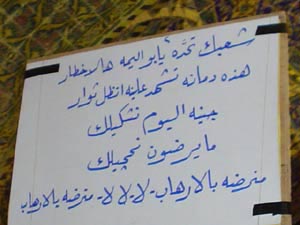 شعبك تحده يابو اليمه هالاخطار
هذه دمانه تشهد علينه انظل ثوار
جينه اليوم نشكيلك
ما يرضون نحچيلك
منرضه بالارهاب-لا-لا-لا- منرضه بالارهاب